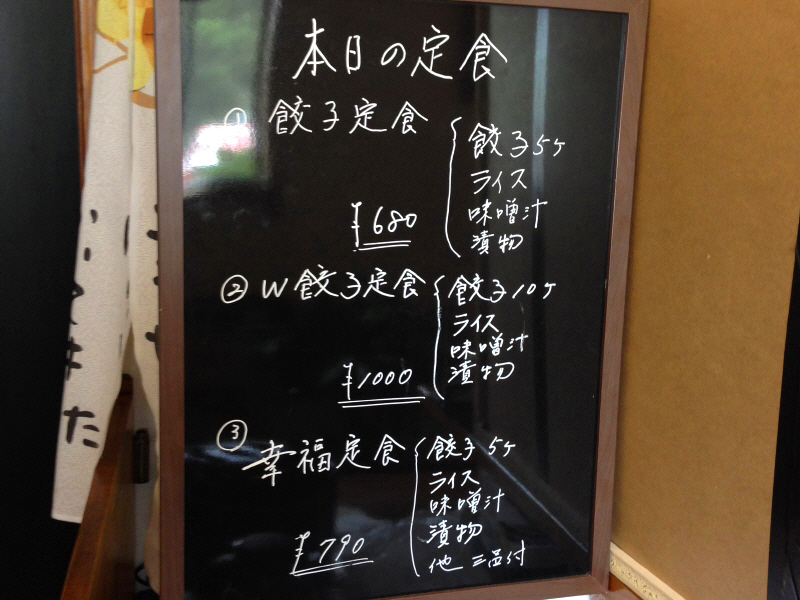 本日の定食
① 餃子定食
¥680
餃子5ヶ
ライス
味噌汁
漬物
② W餃子定食
¥1000
餃子10ヶ
ライス
味噌汁
漬物
③ 幸福定食
¥790
餃子5ヶ
ライス
味噌汁
漬物
他 三品付